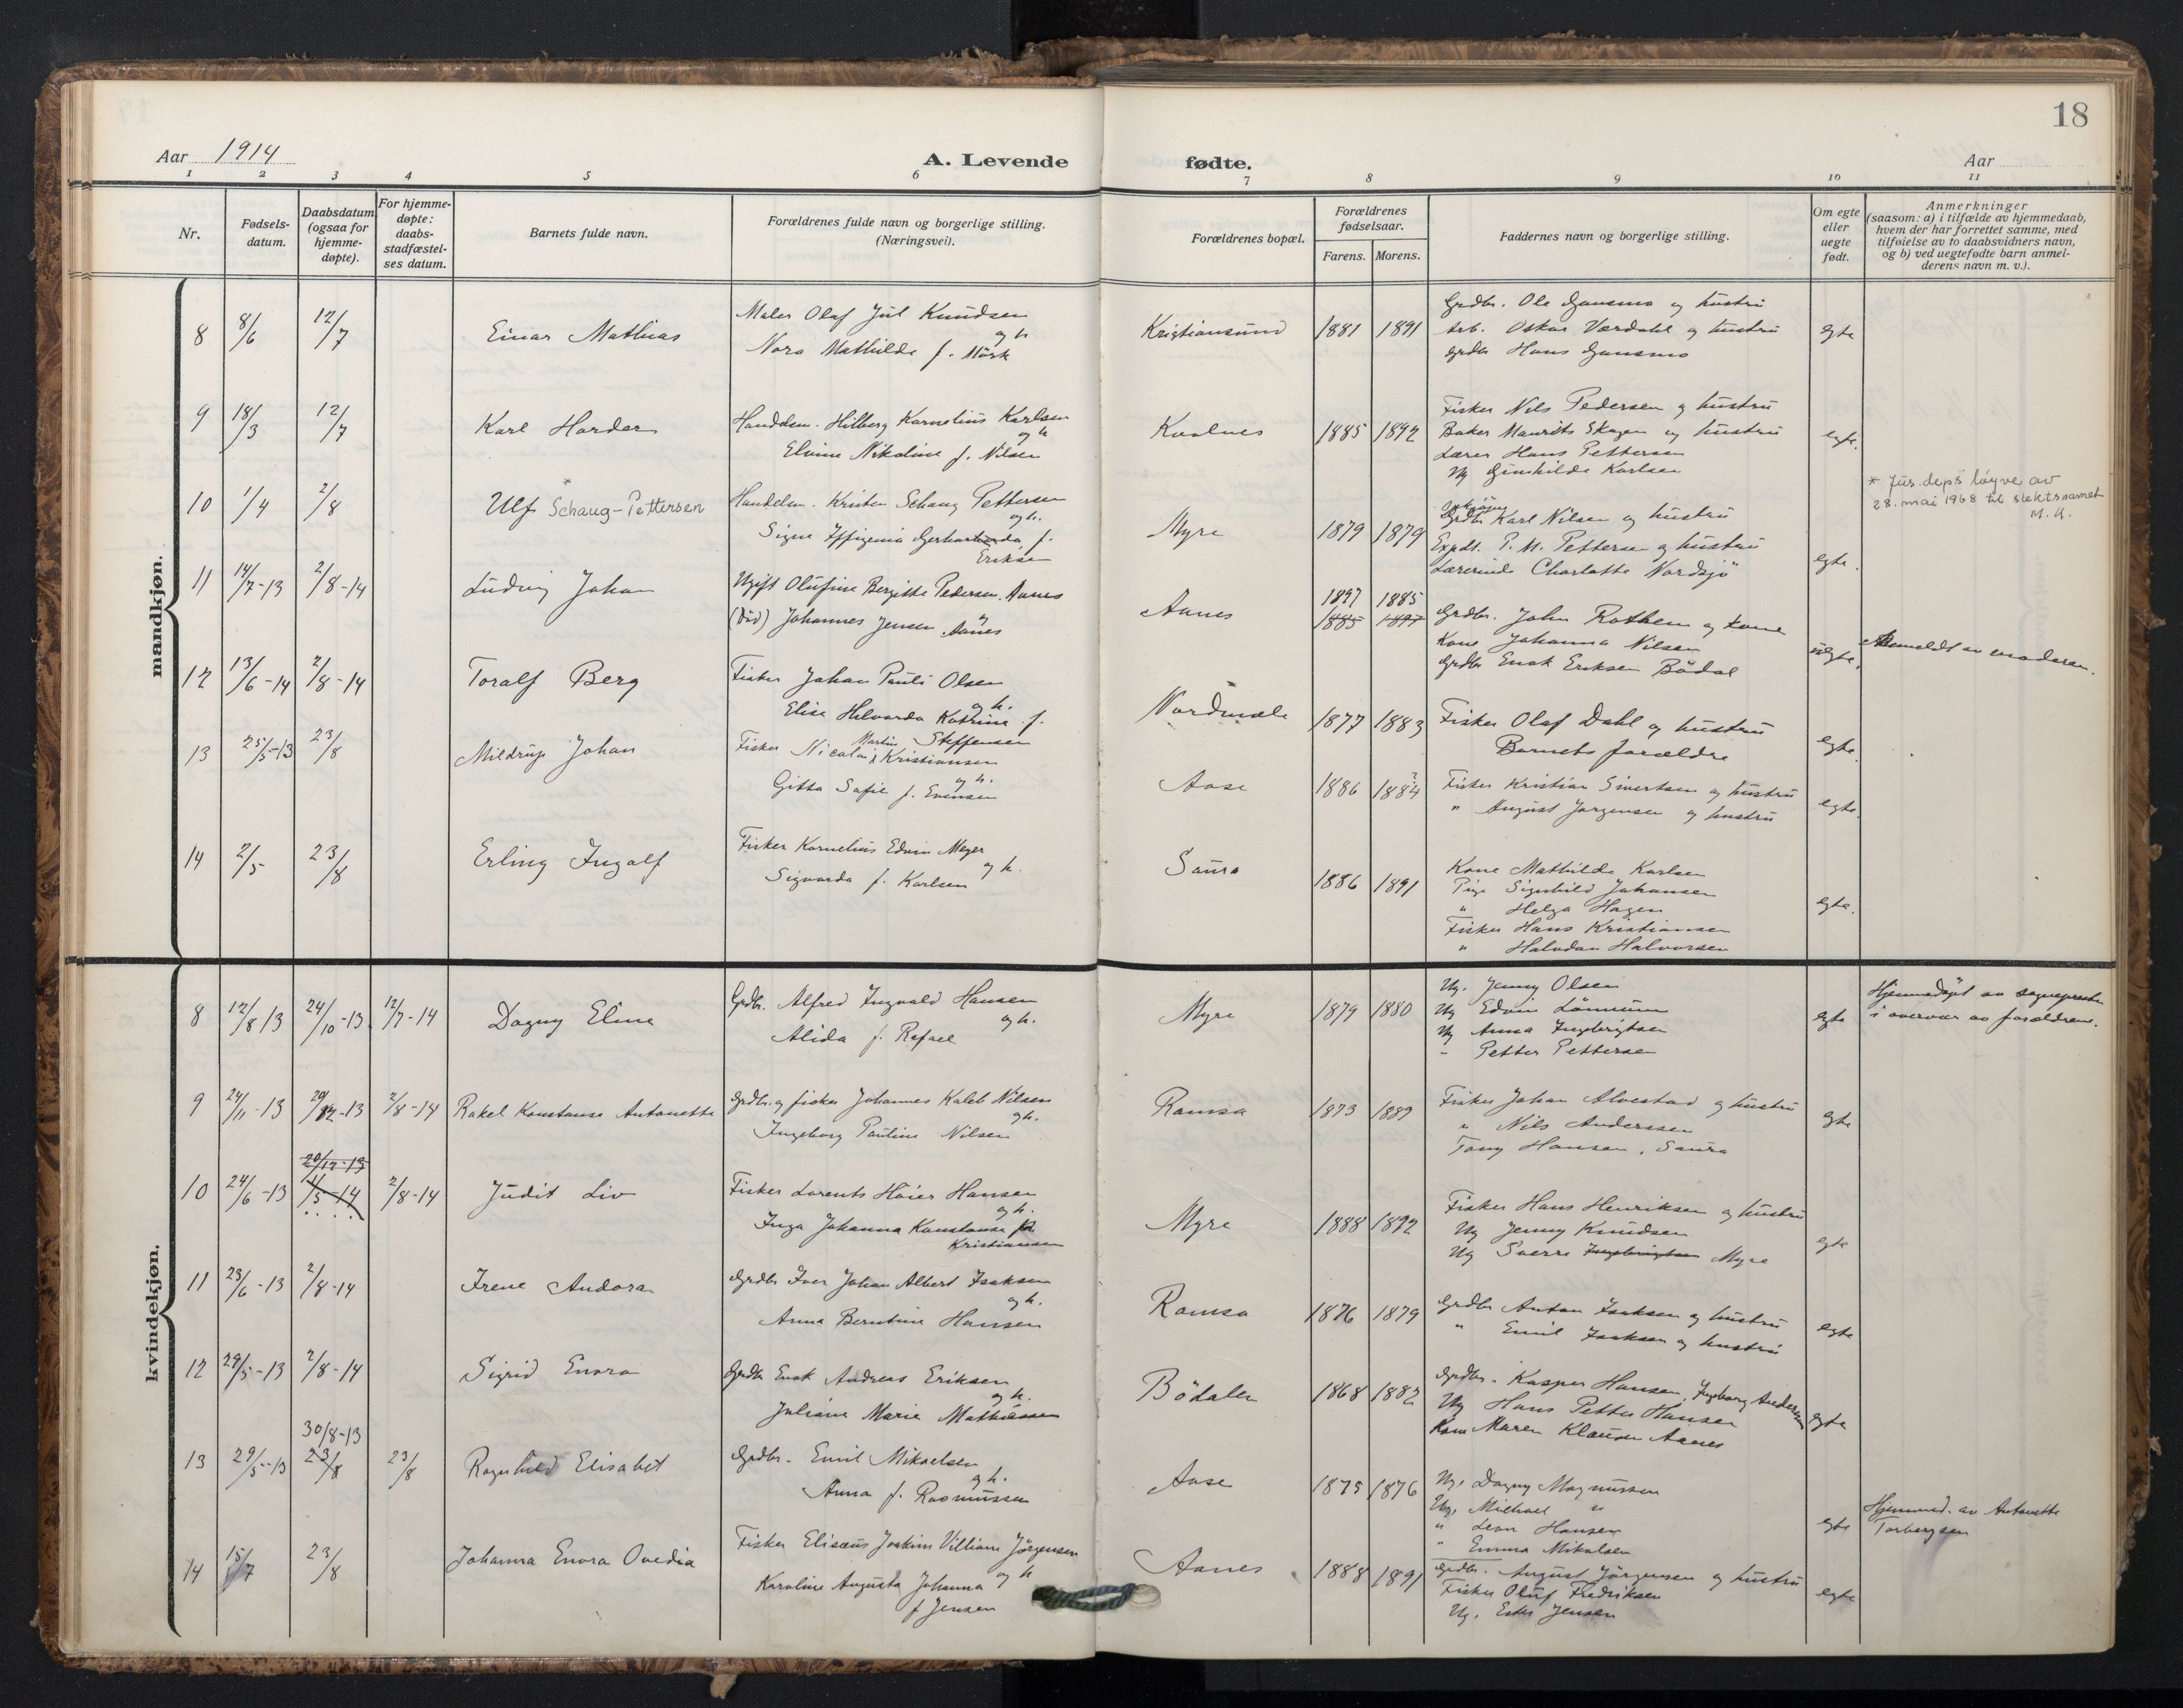 18
Aar 1914
A. Levende fødte.
Aar
1 2 3 4 5 6 7 8 9 10 11
Nr.
Fødsels-
datum.
Daabsdatum
(ogsaa for
hjemme-
døpte).
For hjemme-
døpte:
daabs-
stadfæstel-
ses datum.
Barnets fulde navn.
Forældrenes fulde navn og borgerlige stilling.
(Næringsvei).
Forældrenes bopæl.
Forældrenes
fødselsaar.
Farens. Morens.
Faddernes navn og borgerlige stilling.
Om egte
eller
uegte
født.
Anmerkninger
(saasom: a) i tilfælde av hjemmedaab,
hvem der har forrettet samme, med
tilføielse av to daabsvidners navn,
og b) ved uegtefødte barn anmel-
derens navn m. v.).
mandkjøn.
8 8/6 12/7 Einar Mathias
Maler Olaf Jul Knudsen
og h
Nora Mathilde f. Mörk
Kristiansund 1881 1891
Grdbr. Ole Gansmo og hustru
Arb. Oskar Værdahl og hustru
Grdbr Hans Gansmo
egte
9 18/3 12/7 Karl Harder
Handelsm. Hilberg Kornelius Karlsen
og h
Elvine Nikoline f. Nilsen
Kvalnes 1885 1892
Fisker Nils Pedersen og hustru
Baker Maurits Skagen og hustru
Lærer Hans Pettersen
Ug Gunhilde Karlsen
egte.
10 1/4 2/8 Ulf * Schaug-Pettersen
Handelsm. Kristen Schaug Pettersen
og h.
Signe Iffigenia Gerharda f.
Eriksen
Myre 1879 1879
Grdbr Karl Nilsen og hustru
Expdt. P. M. Pettersen og hustru
Lærerinde Charlotte Nordsjö
egte.
* Jus. deps løyve av
28. mai 1968 til slektsnamet
M. U.
11 14/7-13 2/8-14 Ludvig Johan
Ugift Olufine Bergitte Pedersen Aanes
og
(Död) Johannes Jensen Aanes
Aanes
1897 1885
1885 1897
Grdbr. John Rothem og kone
Kone Johanna Nilsen
Grdbr Enok Eriksen Bödal
uegte.
Anmeldt av moderen.
12 13/6-14 2/8-14 Toralf Berg
Fisker Johan Pauli Olsen
og h.
Elise Halvarda Katrine f.
Steffensen
Nordmele 1877 1883
Fisker Olaf Dahl og hustru
Barnets forældre
egte.
13 25/5-13 23/8 Mildrup Johan
Fisker Nicolai Martin Kristiansen
og h.
Gitta Sofie f. Evensen
Aase 1886 1884
Fisker Kristian Sivertsen og hustru
" August Jørgensen og hustru
egte.
14 2/5 23/8 Erling Ingolf
Fisker Kornelius Edvin Meyer
og h.
Sigvarda f. Karlsen
Saura 1886 1891
Kone Mathilde Karlsen
Pige Signhild Johansen
" Helga Hagen
Fisker Hans Kristiansen
" Halvdan Halvorsen
egte.
kvindekjøn.
8 12/8 13 24/10-13 12/7-14 Dagny Eline
Grdbr. Alfred Ingvald Hansen
og h.
Alida f. Rafael
Myre 1879 1880
Ug. Jenny Olsen
Ug Edvin Lönnum
Ug Anna Ingebrigtsen
" Petter Pettersen
egte
Hjemmedöpt av sogneprsten
i overvær av forældrene.
9 24/11-13 29/12-13 2/8-14 Rakel Konstanse Antonette
Grdbr. og fisker Johannes Kaleb Nilsen
og h.
Ingeborg Pauline Nilsen
Ramsa 1873 1889
Fisker Johan Alvestad og hustru
" Nils Anderssen
Tony Hansen, Saura
egte
10 24/6-13 20/12-13 11/5-14 2/8-14 Judit Liv
Fisker Lorents Höier Hansen
og h.
Inga Johanna Konstanse f.
Kristiansen
Myre 1888 1892
Fisker Hans Henriksen og hustru
Ug Jenny Knudsen
Ug Sverre Ingebrigtsen Myre
egte
11 23/6-13 2/8-14 Irene Andora
Grdbr Iver Johan Albert Isaksen
og h.
Anna Berntine Hansen
Ramsa 1876 1879
Grdbr Anton Isaksen og hustru
" Emil Isaksen og hustru
egte
12 29/5-13 2/8-14 Sigrid Enora
Grdbr Enok Andreas Eriksen
og h.
Juliane Marie Mathiassen
Bödalen 1868 1882
Grdbr. Kasper Hansen, Ingeborg Andersen
Ug Hans Petter Hansen
Kone Maren Klausen Aanes
egte
13 29/5-13 30/8-13 23/8 23/8 Ragnhild Elisabet
Grdbr. Emil Mikaelsen
og h.
Anna f. Rasmussen
Aase 1875 1876
Ug. Dagny Magnussen
Ug. Michael "
" Leon Hansen
" Emma Mikalsen
egte
Hjemmed. av Antonette
Torbergsen
14 15/7 23/8 Johanna Enora Ovedia
Fisker Elisæus Joakim Villiam Jörgensen
og h
Karoline Augusta Johanna
f Jensen
Aanes 1888 1891
Grdbr. August Jörgensen og hustru
Fisker Oluf Fredriksen
Ug. Ester Jensen
egte